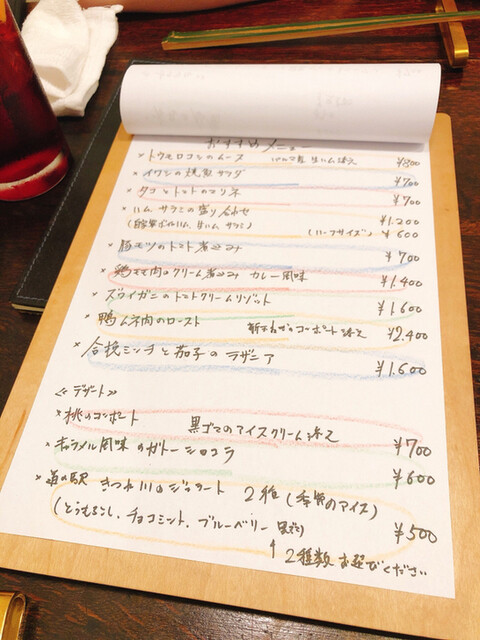 おすすめメニュー
×トウモロコシのムース パルマ産 生ハム添え ¥800
×イワシの燻製サラダ ¥700
×タコとトマトのマリネ ¥700
×ハム、サラミの盛り合わせ ¥1.200
(自家製ボンレスハム、生ハム、サラミ) (ハーフサイズ) ¥600
×豚モツのトマト煮込み ¥700
×鶏モモ肉のクリーム煮込み カレー風味 ¥1.400
×ズワイガニのトマトクリームリゾット ¥1.600
×鴨ムネ肉のロースト 新玉ねぎのコンポート添え ¥2.400
×合挽ミンチと茄子のラザニア ¥1.600
≪デザート≫
×桃のコンポート 黒ゴマのアイスクリーム添え ¥700
×キャラメル風味のガトーショコラ ¥600
×道の駅 きつれ川のジェラート 2種(季節のアイス)
(とうもろこし、チョコミント、ブルーベリー) ¥500
↑2種類お選びください